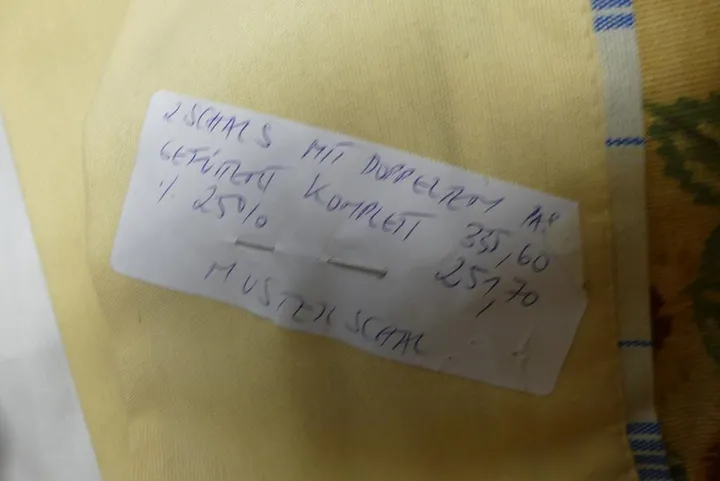 2 SCHALS MIT DOPPELTEM
GEFÜTTERT KOMPLETT 335,60
% 25% 251,70
MUSTERSCHAL